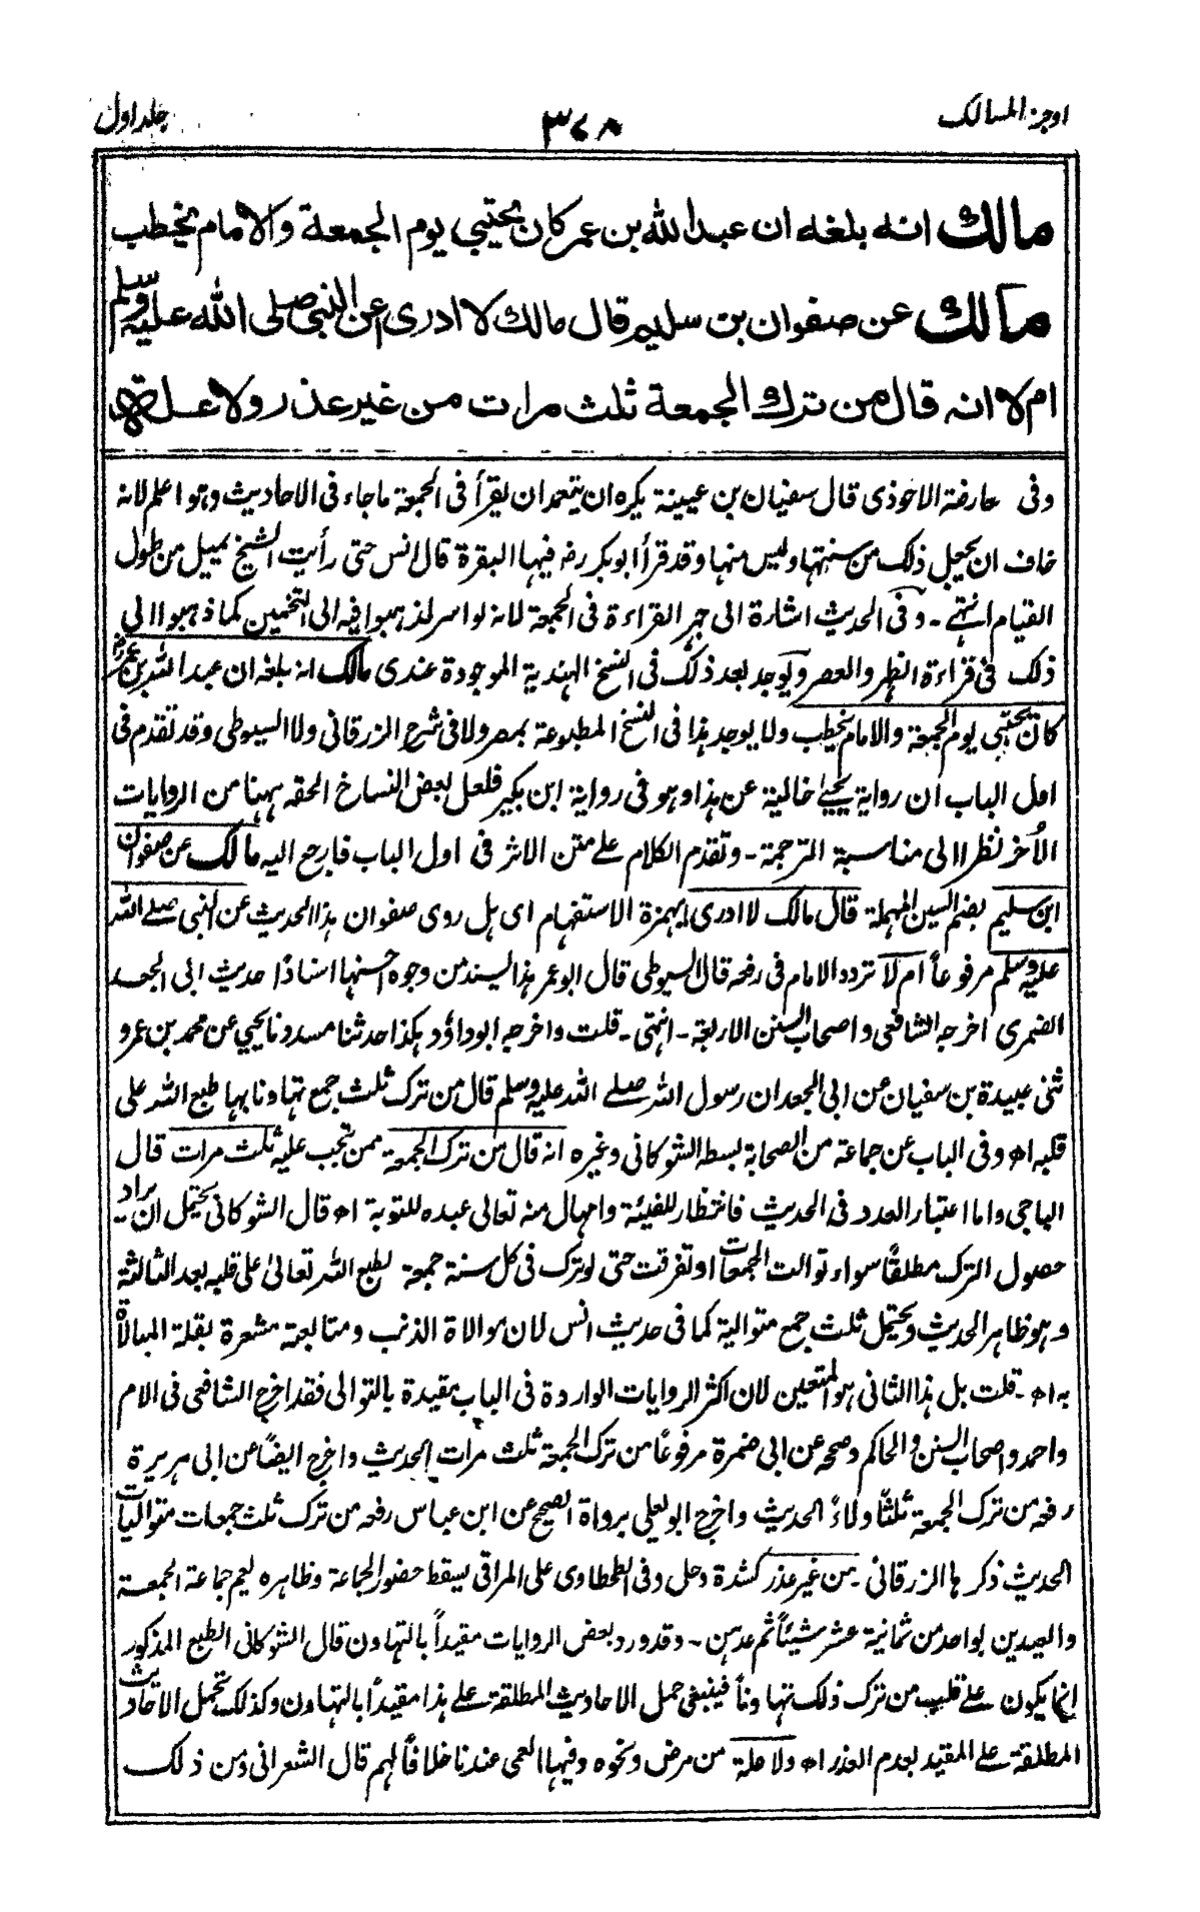 اوجز المسالک
٣٦٨
جلد اول
مالك انه بلغه ان عبد الله بن عمر كان يحتبي يوم الجمعة والامام يخطب
مالك عن صفوان بن سليم قال مالك لا ادرى أعن النبي صلى الله عليه وسلم
ام لا انه قال من ترك الجمعة ثلث مرات من غير عذر ولا علة
وفى عارضة الاحوذى قال سفيان بن عيينة يكره ان يتعمد ان يقرأ فى الجمعة ما جاء فى الاحاديث وهو اعلم لانه
خاف ان يجعل ذلك من سنتها وليس منها وقد قرأ ابو بكر رض فيها البقرة قال انس حتى رأيت الشيخ يميل من طول
القيام انتهى - وفى الحديث اشارة الى جهر القراءة فى الجمعة لانه لو اسر لذهبوا فيه الى التخمين كما ذهبوا الى
ذلك فى قراءة الظهر والعصر ويوجد بعد ذلك فى النسخ الهندية الموجودة عندى مالك انه بلغه ان عبد الله بن عمر
كان يحتبى يوم الجمعة والامام يخطب ولا يوجد هذا فى النسخ المطبوعة بمصر ولا فى شرح الزرقانى ولا السيوطى وقد تقدم فى
اول الباب ان رواية يحيى خالية عن هذا وهو فى رواية ابن بكير فلعل بعض النساخ الحقه ههنا من الروايات
الأخر نظرا الى مناسبة الترجمة - وتقدم الكلام على متن الاثر فى اول الباب فارجع اليه مالك عن صفوان
ابن سليم بضم السين المهملة قال مالك لا ادرى أ بهمزة الاستفهام اى هل روى صفوان هذا الحديث عن النبى صلى الله
عليه وسلم مرفوعاً ام لا تردد الامام فى رفعه قال السيوطى قال ابو عمر هذا ليسند من وجوه احسنها اسنادًا حديث ابى الجعد
الضمرى اخرجه الشافعى واصحاب السنن الاربعة - انتهى - قلت واخرجه ابو داؤد هكذا حدثنا مسدد نا يحيى عن محمد بن عمرو
ثنى عبيدة بن سفيان عن ابى الجعد ان رسول الله صلى الله عليه وسلم قال من ترك ثلث جمع تهاونا بها طبع الله على
قلبه اھ وفى الباب عن جماعة من الصحابة بسطه الشوكانى وغيره انه قال من ترك الجمعة ممن تجب عليه ثلث مرات قال
الباجى واما اعتبار العدد فى الحديث فانتظار للفيئة وامهال منه تعالى عبده للتوبة اھ قال الشوكانى يحتمل ان يراد
حصول الترك مطلقًا سواء توالت الجمعات او تفرقت حتى لو ترك فى كل سنة جمعة لطبع الله تعالى على قلبه بعد الثالثة
وهو ظاهر الحديث ويحتمل ثلث جمع متوالية كما فى حديث انس لان موالاة الذنب ومتابعته مشعرة بقلة المبالاة
به اھ - قلت بل هذا الثانى هو المتعين لان اكثر الروايات الواردة فى الباب مقيدة بالتوالى فقد اخرج الشافعى فى الام
واحمد واصحاب السنن والحاكم وصححه عن ابى ضمرة مرفوعًا من ترك الجمعة ثلث مرات الحديث واخرج ايضًا عن ابى هريرة
رفعه من ترك الجمعة ثلثًا ولاءً الحديث واخرج ابو يعلى برواة الصحيح عن ابن عباس رفعه من ترك ثلث جمعات متواليات
الحديث ذكرها الزرقانى من غير عذر كشدة وحل وفى الطحطاوى على المراقى يسقط حضور الجماعة وظاهره يعم جماعة الجمعة
والعيدين بواحد من ثمانية عشر شيئًا ثم عدهن - وقد ورد بعض الروايات مقيداً بالتهاون قال الشوكانى الطبع المذكور
انما يكون على قلب من ترك ذلك تهاوناً فينبغى حمل الاحاديث المطلقة على هذا مقيداً بالتهاون وكذلك تحمل الاحاديث
المطلقة على المقيد بعدم العذر اھ ولا علة من مرض ونحوه وفيها العمى عندنا خلافًا لهم قال الشعرانى ومن ذلك